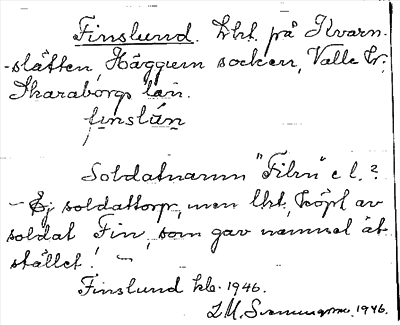 Finslund. Lht. på Kvarn-
-slätten, Häggum socken, Valle hr,
Skaraborgs län.
finslún
Soldatnamn "Filen" e l.?
- Ej soldattorp, men lht, köpt av
soldat Fin, som gav namnet åt
stället! -
Finslund kb. 1946.
1946.